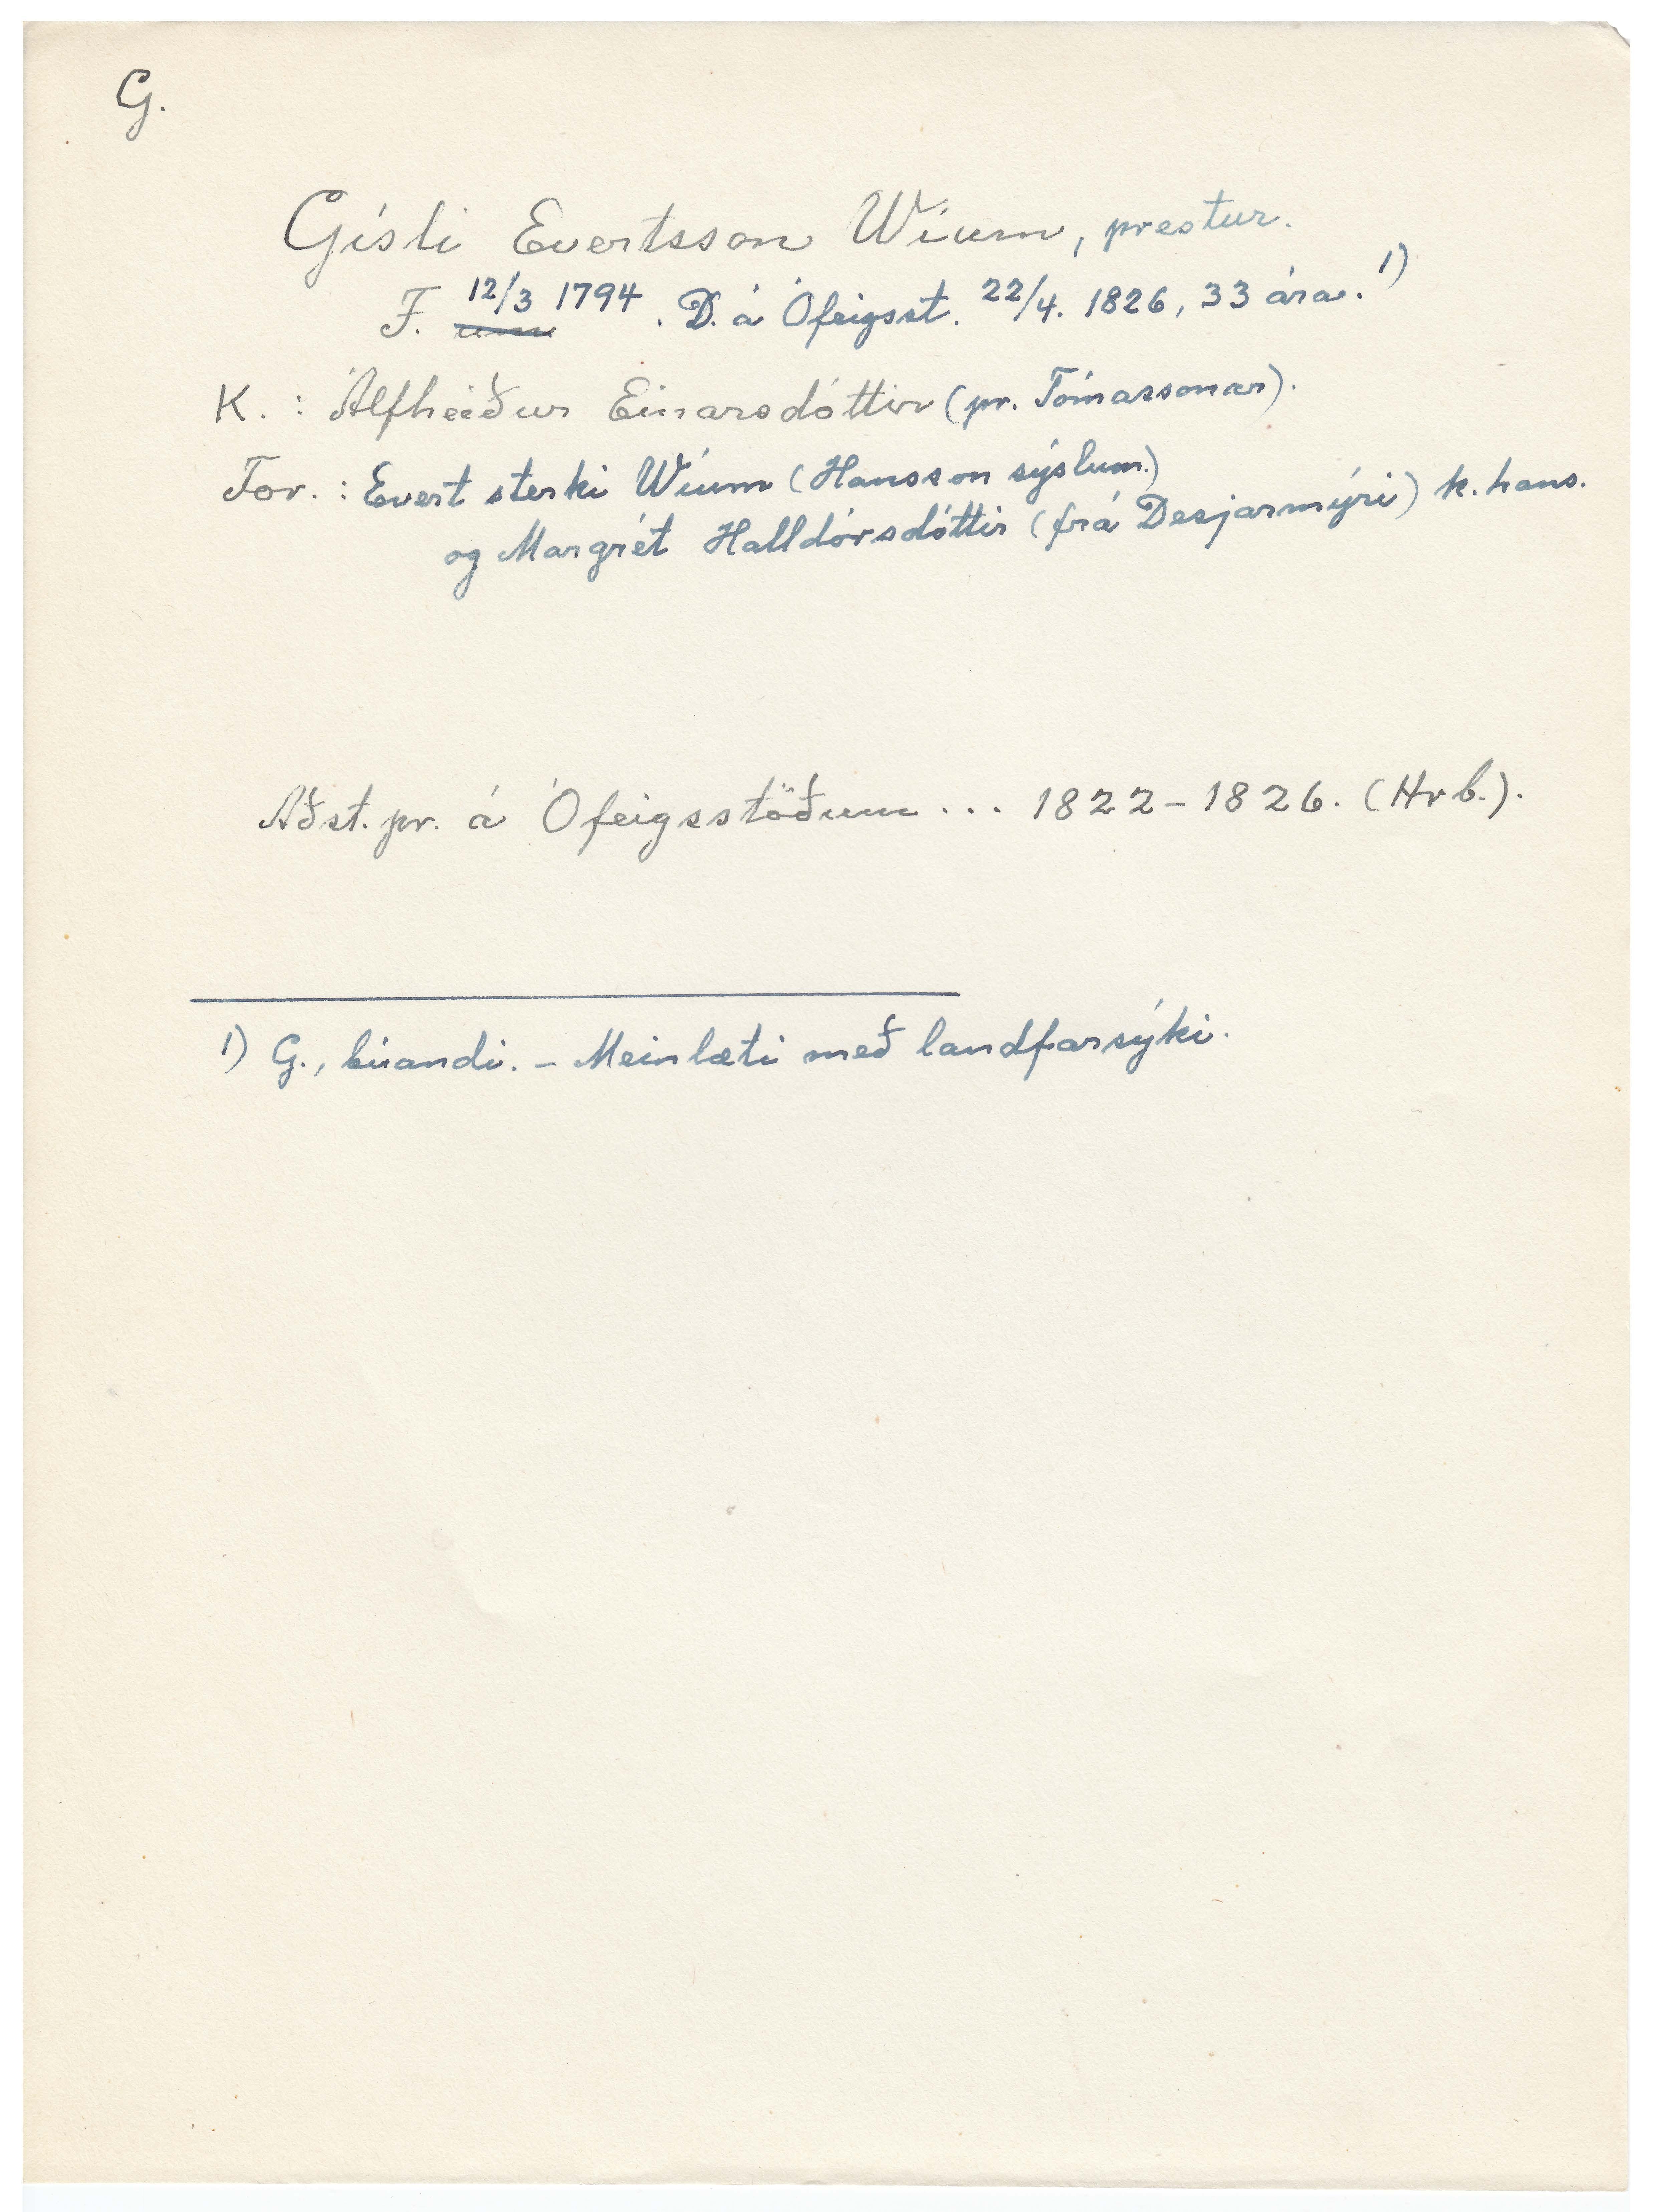 G.
Gísli Evertsson Wíum, prestur.
F. um 12/3 1794. D. á Ófeigsst. 22/4. 1826, 33 ára. 1)
K. : Álfheiður Einarsdóttir (pr. Tómassonar).
For. : Evert sterki Wíum (Hansson sýslum.)
og Margrét Halldórsdóttir (frá Desjarmýri) k. hans.
Aðst. pr. á Ófeigsstöðum ... 1822-1826. (Hrb.).
1) G., búandi. - Meinlæti með landfarsýki.